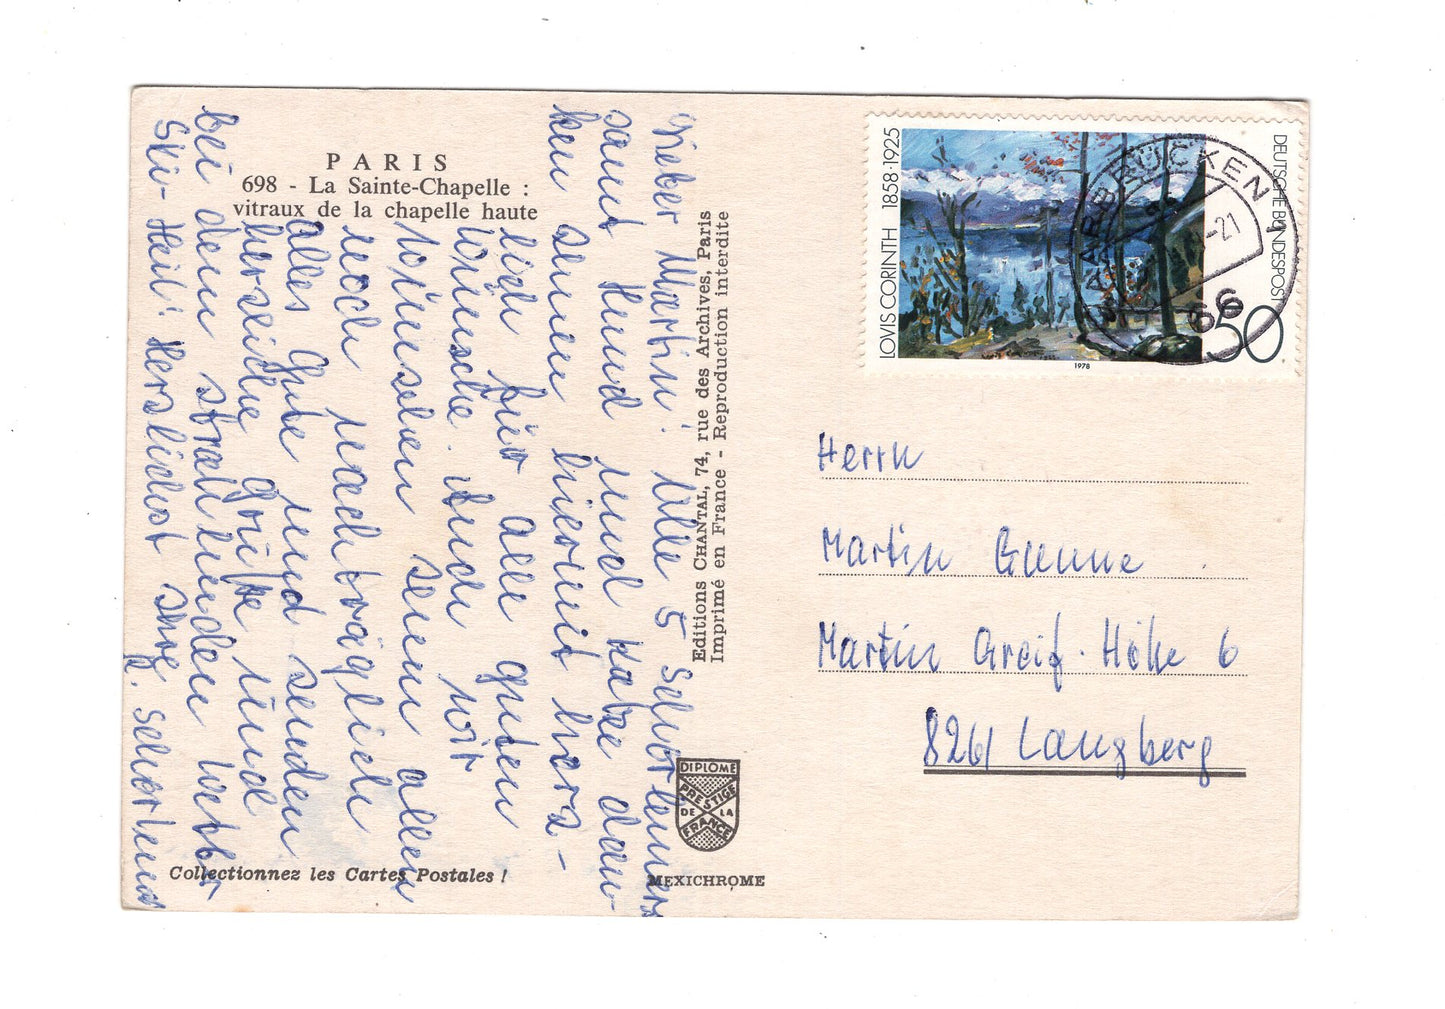 PARIS
698 - La Sainte-Chapelle :
vitraux de la chapelle haute
Lieber Martin! Alle 5 Schorlemers
samt Hund und Katze dan-
ken Ihnen hiermit herz-
lich für alle guten
Wünsche. Auch wir
wünschen Ihnen allen
noch nachträglich
alles Gute und senden
herzliche Grüße und
bei dem strahlenden Wetter
Ski-Heil! Herzlichst Ihre
Schorlemers
Editions CHANTAL, 74, rue des Archives, Paris
Imprimé en France - Reproduction interdite
DIPLOME
PRESTIGE
DE LA
FRANCE
MEXICHROME
Collectionnez les Cartes Postales !
LOVIS CORINTH 1858·1925
DEUTSCHE BUNDESPOST
50
1978
SAARBRÜCKEN
-21
66
Herrn
Martin
Martin Greif-Höhe 6
8261 Langberg